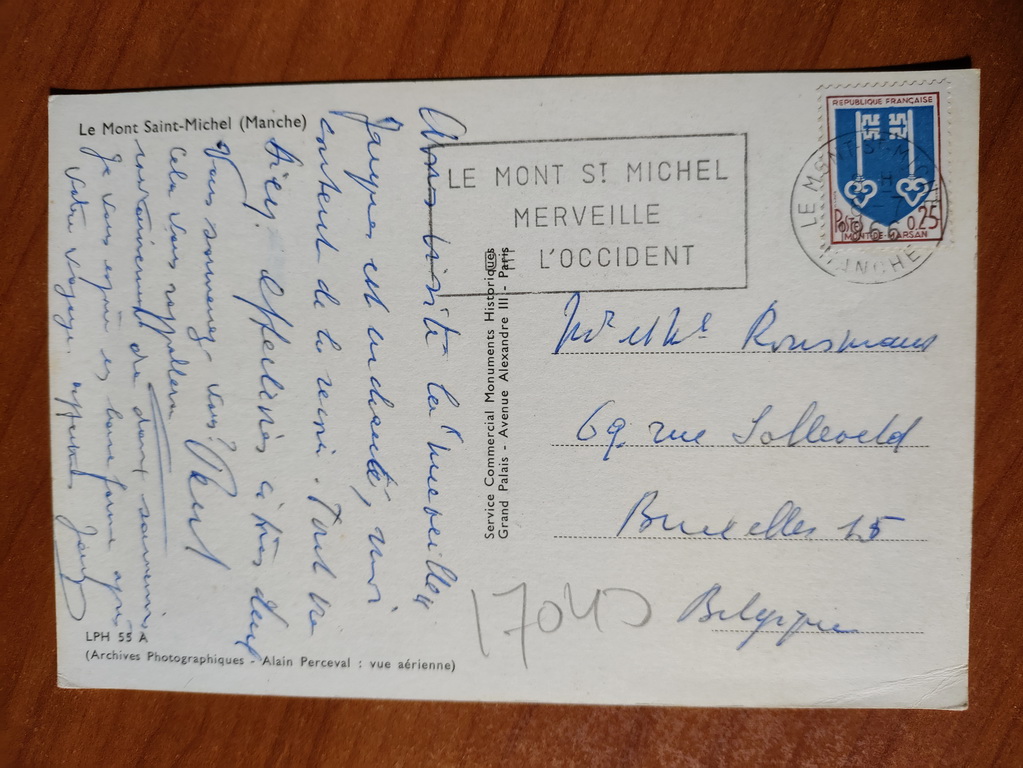 Le Mont Saint-Michel (Manche)
Avons visité la "merveille"
Jacques est enchanté, moi
contente de le revoir. Tout va
bien. Affections à tous deux
Vous souvenez-vous?
Cela vous rappellera
certainement de doux souvenirs
Je vous espère en bonne forme après
votre voyage.
LPH 55 A
(Archives Photographiques - Alain Perceval : vue aérienne)
Service Commercial Monuments Historiques
Grand Palais - Avenue Alexandre III - Paris
LE MONT ST MICHEL
MERVEILLE
L'OCCIDENT
REPUBLIQUE FRANÇAISE
POSTES 0,25
MONT-DE-MARSAN
LE MONT-ST-MICHEL
MANCHE
Mr et Me Rousmans
69 rue Solleveld
Bruxelles 15
Belgique